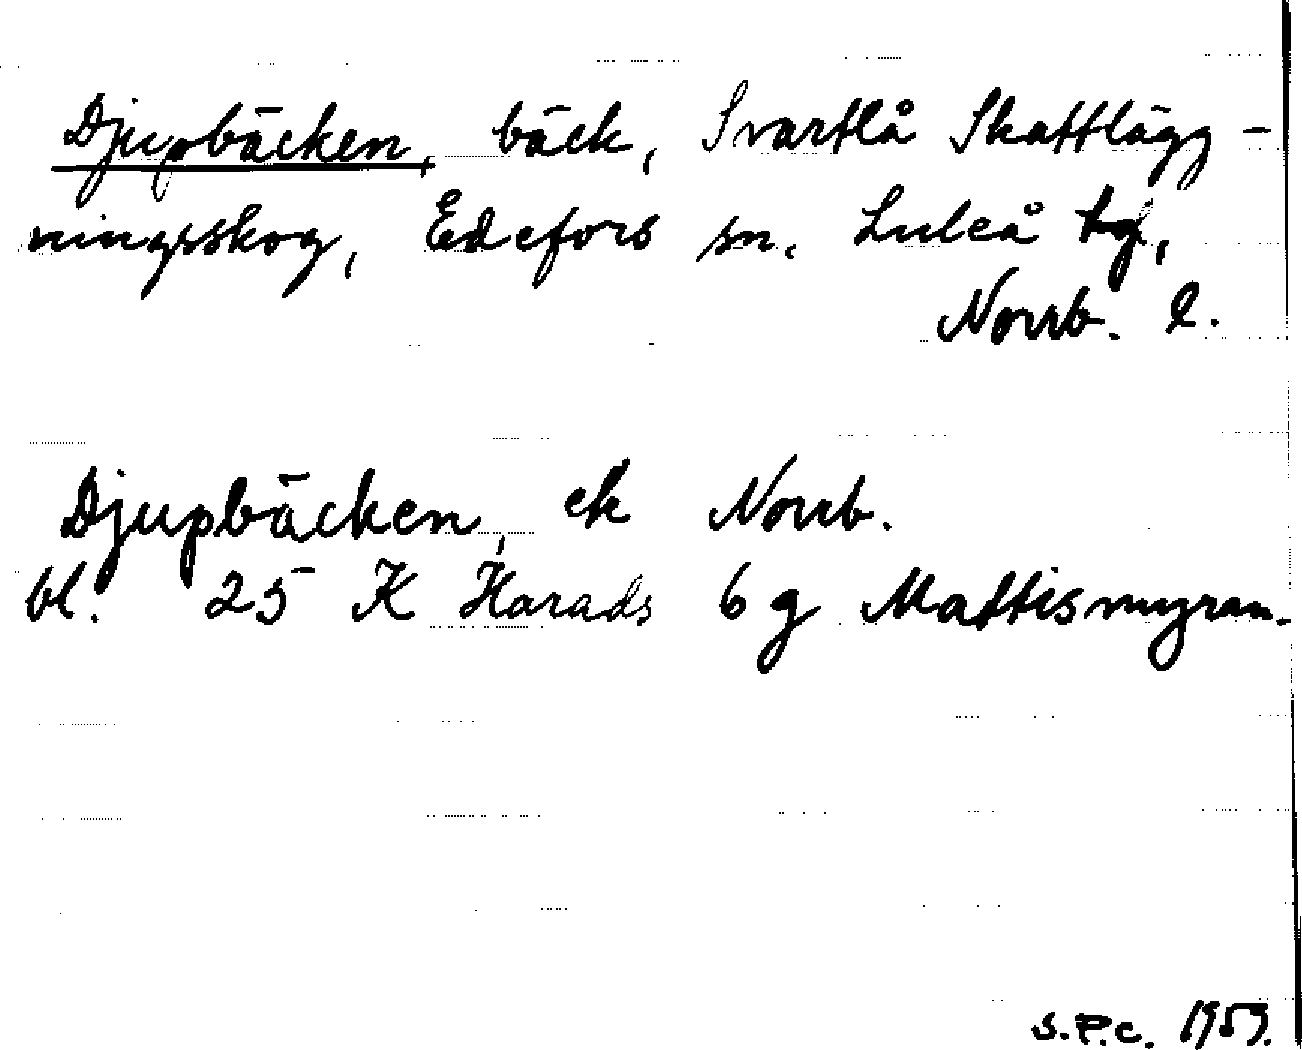 Djupbäcken, bäck, Svartlå Skattlägg-
ningsskog, Edefors sn. Luleå tg,
Norrb. l.
Djupbäcken, ek Norrb.
bl. 25 K Harads 6 g Mattismyran.
S.P.C. 1959.